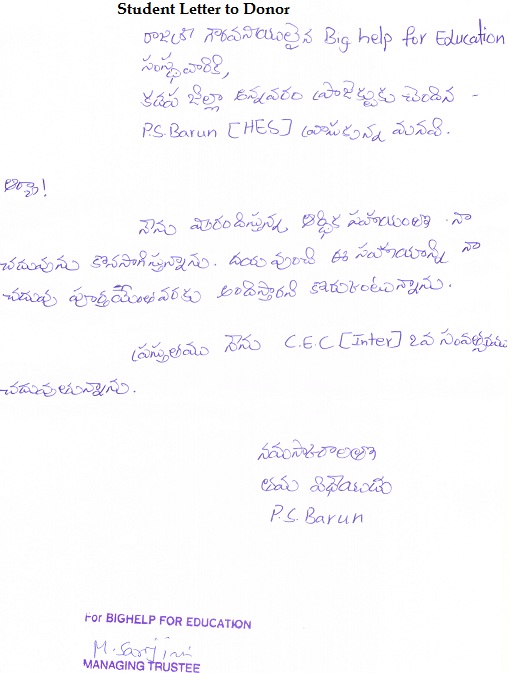 Student Letter to Donor
రాజశ్రీ గౌరవనీయులైన Big help for Education
సంస్థవారికి,
కడప జిల్లా అన్నవరం ప్రాజెక్టుకు చెందిన -
P.S.Barun [HES] వ్రాసుకున్న మనవి.
ఆర్యా!
నేను మీరందిస్తున్న ఆర్థిక సహాయంతో నా
చదువును కొనసాగిస్తున్నాను. దయ వుంచి ఈ సహాయాన్ని నా
చదువు పూర్తయేంతవరకు అందిస్తారని కోరుకుంటున్నాను.
ప్రస్తుతము నేను C.E.C [Inter] 2వ సంవత్సరము
చదువుతున్నాను.
నమస్కారాలతో
తమ విధేయుడు
P.S.Barun
For BIGHELP FOR EDUCATION
M. Sarojini
MANAGING TRUSTEE